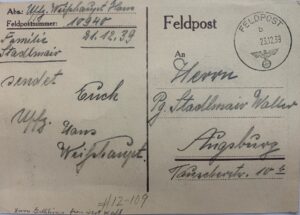 Abs.: Uffz. Weißhaupt Hans
Feldpostnummer: 10940
21.12.39
Familie
Stadlmair
sendet
Euch
Uffz. Hans
Weißhaupt.
Feldpost
FELDPOST
b
23.12.39
An
Herrn
Pg. Stadlmair Walter
Augsburg
#12-109